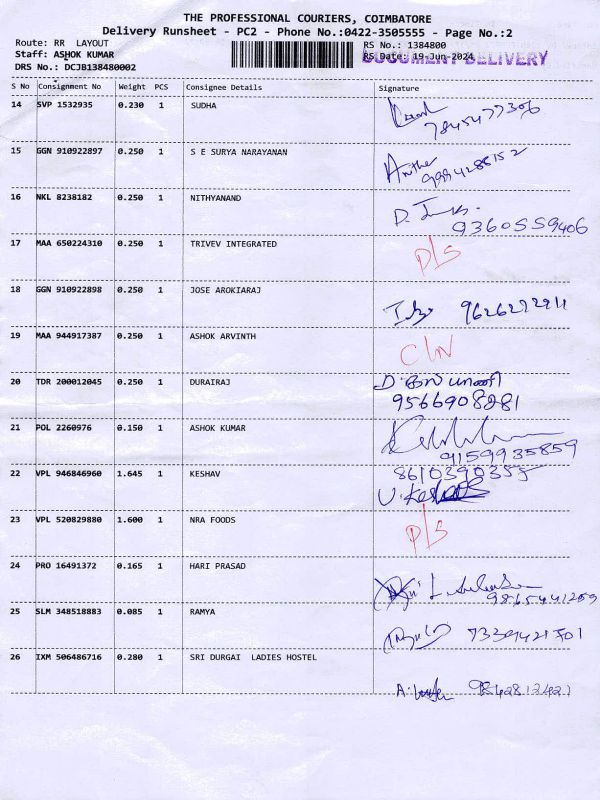 THE PROFESSIONAL COURIERS, COIMBATORE
Delivery Runsheet - PC2 - Phone No.:0422-3505555 - Page No.:2
Route: RR LAYOUT RS No.: 1384800
Staff: ASHOK KUMAR RS Date: 19-Jun-2024 DOCUMENT DELIVERY
DRS No.: DCJB138480002
S No Consignment No Weight PCS Consignee Details Signature
14 SVP 1532935 0.230 1 SUDHA
7845477306
15 GGN 910922897 0.250 1 S E SURYA NARAYANAN
Anitha
9994288152
16 NKL 8238182 0.250 1 NITHYANAND
9360559406
17 MAA 650224310 0.250 1 TRIVEV INTEGRATED
P/S
18 GGN 910922898 0.250 1 JOSE AROKIARAJ
9626272211
19 MAA 944917387 0.250 1 ASHOK ARVINTH
C/N
20 TDR 200012045 0.250 1 DURAIRAJ
9566908281
21 POL 2260976 0.150 1 ASHOK KUMAR
9159935859
22 VPL 946846960 1.645 1 KESHAV
8610390355
23 VPL 520829880 1.600 1 NRA FOODS
P/S
24 PRO 16491372 0.165 1 HARI PRASAD
9865441259
25 SLM 348518883 0.085 1 RAMYA
7339421701
26 IXM 506486716 0.280 1 SRI DURGAI LADIES HOSTEL